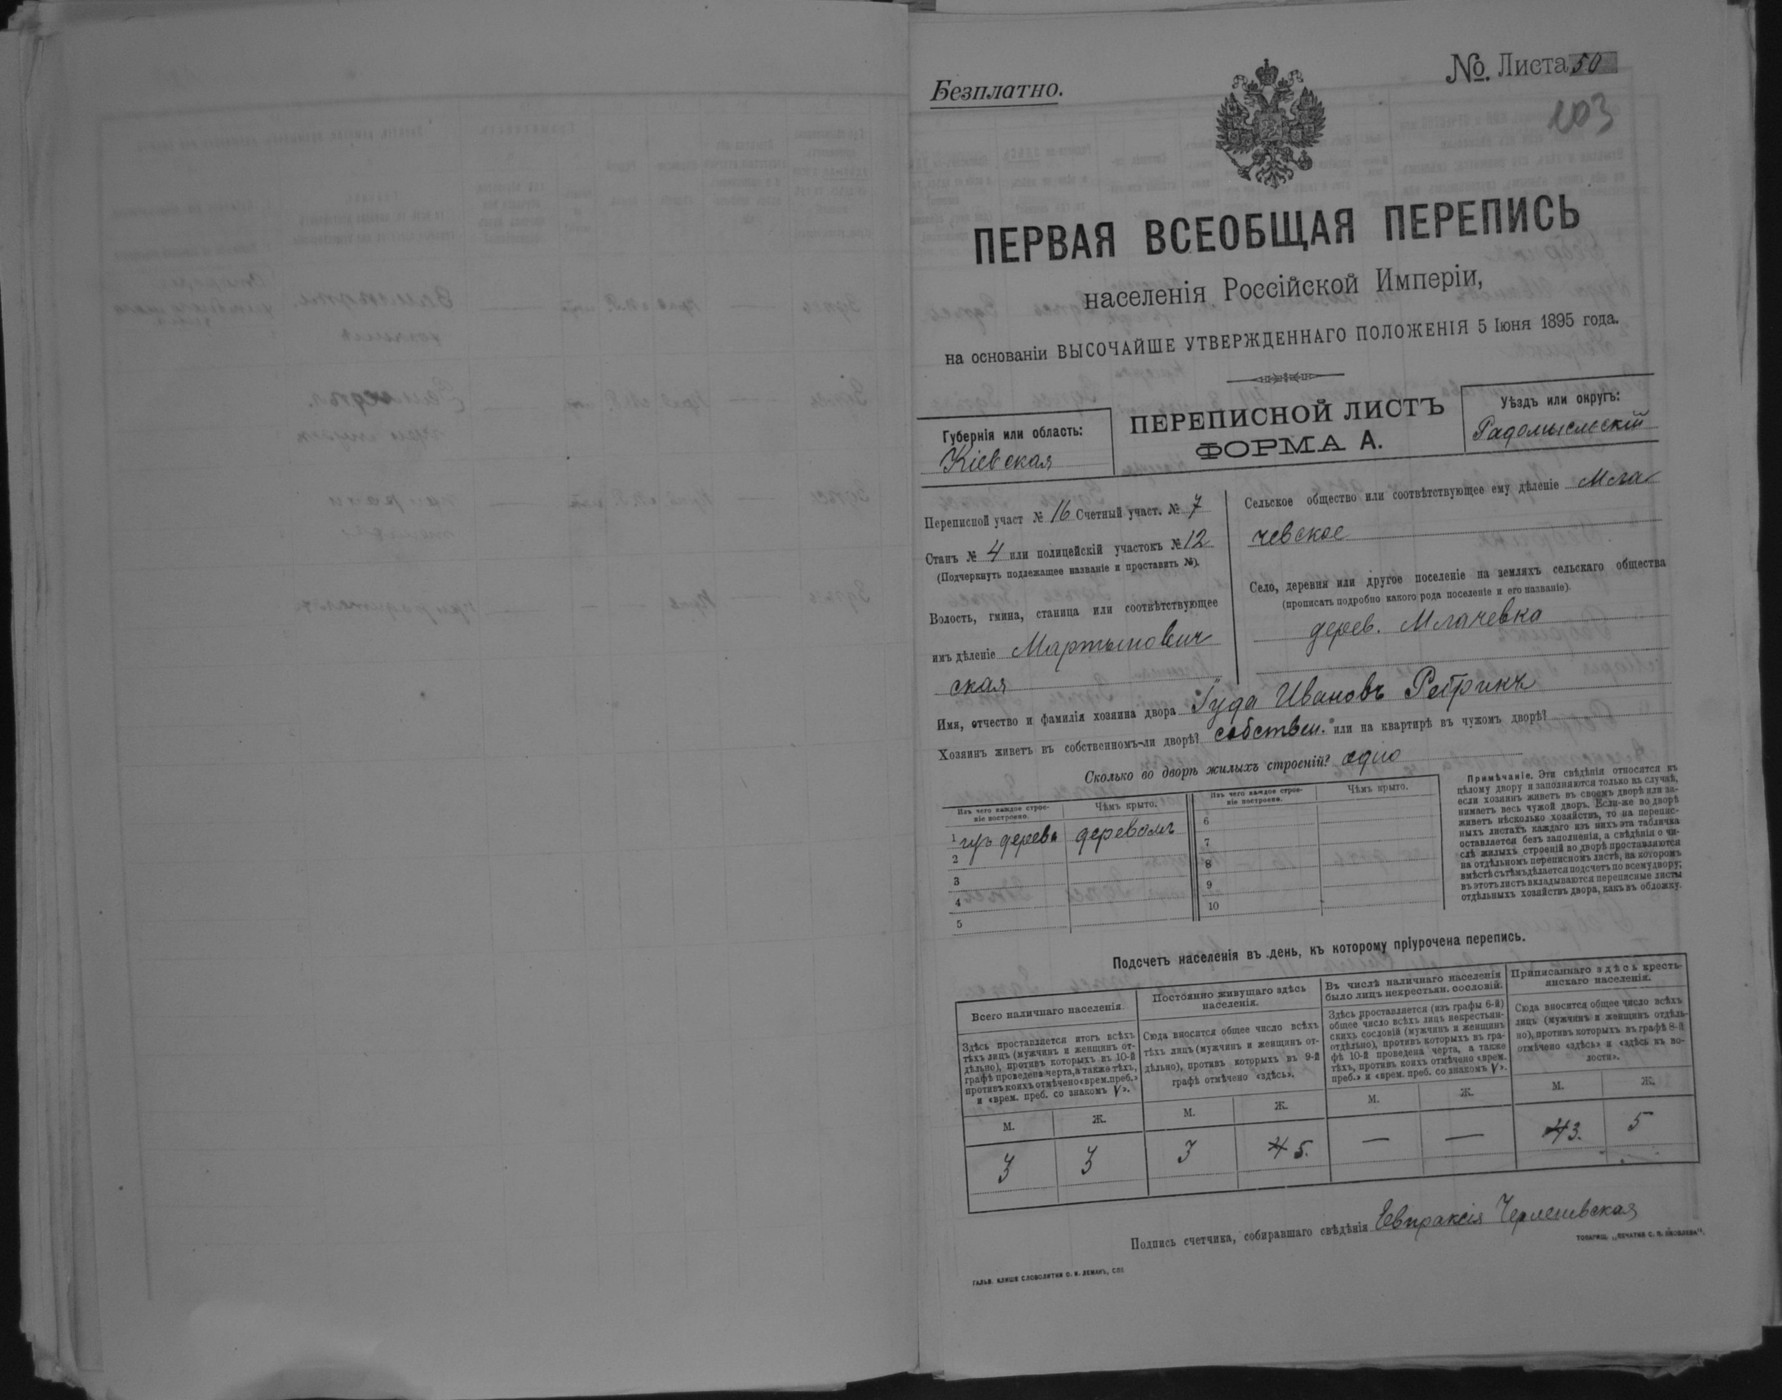 Безплатно.
№. Листа 50
103
ПЕРВАЯ ВСЕОБЩАЯ ПЕРЕПИСЬ
населенія Россійской Имперіи,
на основаніи ВЫСОЧАЙШЕ УТВЕРЖДЕННАГО ПОЛОЖЕНІЯ 5 Іюня 1895 года.
Губернія или область:
Кіевская
ПЕРЕПИСНОЙ ЛИСТЪ
ФОРМА А.
Уѣздъ или округъ:
Радомысльскій
Переписной участ № 16 Счетный участ. № 7
Станъ № 4 или полицейскій участокъ № 12
(Подчеркнуть подлежащее названіе и проставить №).
Волость, гмина, станица или соотвѣтствующее
имъ дѣленіе Мартынович
ская
Сельское общество или соотвѣтствующее ему дѣленіе Мла
чевское
Село, деревня или другое поселеніе на земляхъ сельскаго общества
(прописать подробно какого рода поселеніе и его названіе).
дерев. Млачевка
Имя, отчество и фамилія хозяина двора Гуда Ивановъ Ребрикъ
Хозяинъ живетъ въ собственномъ-ли дворѣ? собствен. или на квартирѣ въ чужомъ дворѣ?
Сколько во дворѣ жилыхъ строеній? одно
Изъ чего каждое строе-
ніе построено.
Чѣмъ крыто.
Изъ чего каждое строе-
ніе построено.
Чѣмъ крыто.
1 изъ дерева деревомъ
2
3
4
5
6
7
8
9
10
Примѣчаніе. Эти свѣдѣнія относятся къ
цѣлому двору и заполняются только въ случаѣ,
если хозяинъ живетъ въ своемъ дворѣ или за-
нимаетъ весь чужой дворъ. Если-же во дворѣ
живетъ нѣсколько хозяйствъ, то на перепис-
ныхъ листахъ каждаго изъ нихъ эта табличка
оставляется безъ заполненія, а свѣдѣнія о чи-
слѣ жилыхъ строеній во дворѣ проставляются
на отдѣльномъ переписномъ листѣ, на которомъ
вмѣстѣ съ тѣмъ дѣлается подсчетъ по всему двору;
въ этотъ листъ вкладываются переписные листы
отдѣльныхъ хозяйствъ двора, какъ въ обложку.
Подсчетъ населенія въ день, къ которому пріурочена перепись.
Всего наличнаго населенія.
Здѣсь проставляется итогъ всѣхъ
тѣхъ лицъ (мужчинъ и женщинъ от-
дѣльно), противъ которыхъ въ 10-й
графѣ проведена черта, а также тѣхъ,
противъ коихъ отмѣчено «врем. преб.»
и «врем. преб. со знакомъ V».
М.
Ж.
Постоянно живущаго здѣсь
населенія.
Сюда вносится общее число всѣхъ
тѣхъ лицъ (мужчинъ и женщинъ от-
дѣльно), противъ которыхъ въ 9-й
графѣ отмѣчено «здѣсь».
М.
Ж.
Въ числѣ наличнаго населенія
было лицъ некрестьян. сословій.
Здѣсь проставляется (изъ графы 6-й)
общее число всѣхъ лицъ некрестьян-
скихъ сословій (мужчинъ и женщинъ
отдѣльно), противъ которыхъ въ гра-
фѣ 10-й проведена черта, а также
тѣхъ, противъ коихъ отмѣчено «врем.
преб.» и «врем. преб. со знакомъ V».
М.
Ж.
Приписаннаго здѣсь кресть-
янскаго населенія.
Сюда вносится общее число всѣхъ
лицъ (мужчинъ и женщинъ отдѣль-
но), противъ которыхъ въ графѣ 8-й
отмѣчено «здѣсь» и «здѣсь въ во-
лости».
М.
Ж.
3 3 3 4 5. — — 4 3. 5
Подпись счетчика, собиравшаго свѣдѣнія Евпраксія
ГАЛЬВ. КЛИШЕ СЛОВОЛИТНИ О. И. ЛЕМАНЪ, СПБ
ТОВАРИЩ. „ПЕЧАТНЯ С. П. ЯКОВЛЕВА“.